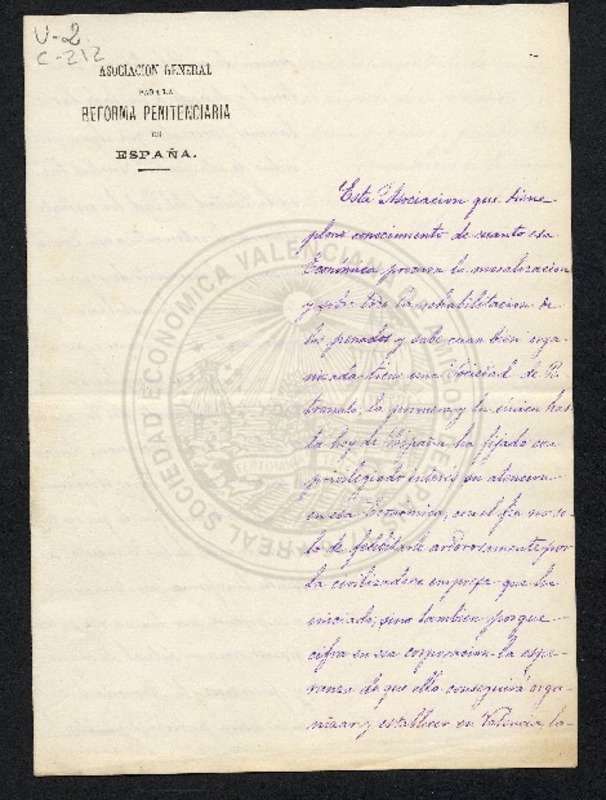 U-2
C-212
ASOCIACION GENERAL
PARA LA
REFORMA PENITENCIARIA
EN
ESPAÑA.
Esta Asociacion que tiene
pleno conocimiento de cuanto esa
Económica procura la moralizacion
y sobre todo la rehabilitacion de
los penados y sabe cuan bien orga-
nizada tiene una Sociedad de Pa-
tronato, la primera y la única has-
ta hoy de España, ha fijado con
privilegiado interés su atencion
en esa Económica, con el fin no so-
lo de felicitarle ardorosamente por
la civilizadora empresa que ha
iniciado, sino tambien porque
cifra en esa corporacion la espe-
ranza de que ella conseguirá orga-
nizar y establecer en Valencia, la
REAL SOCIEDAD ECONOMICA VALENCIANA DE AMIGOS DEL PAIS